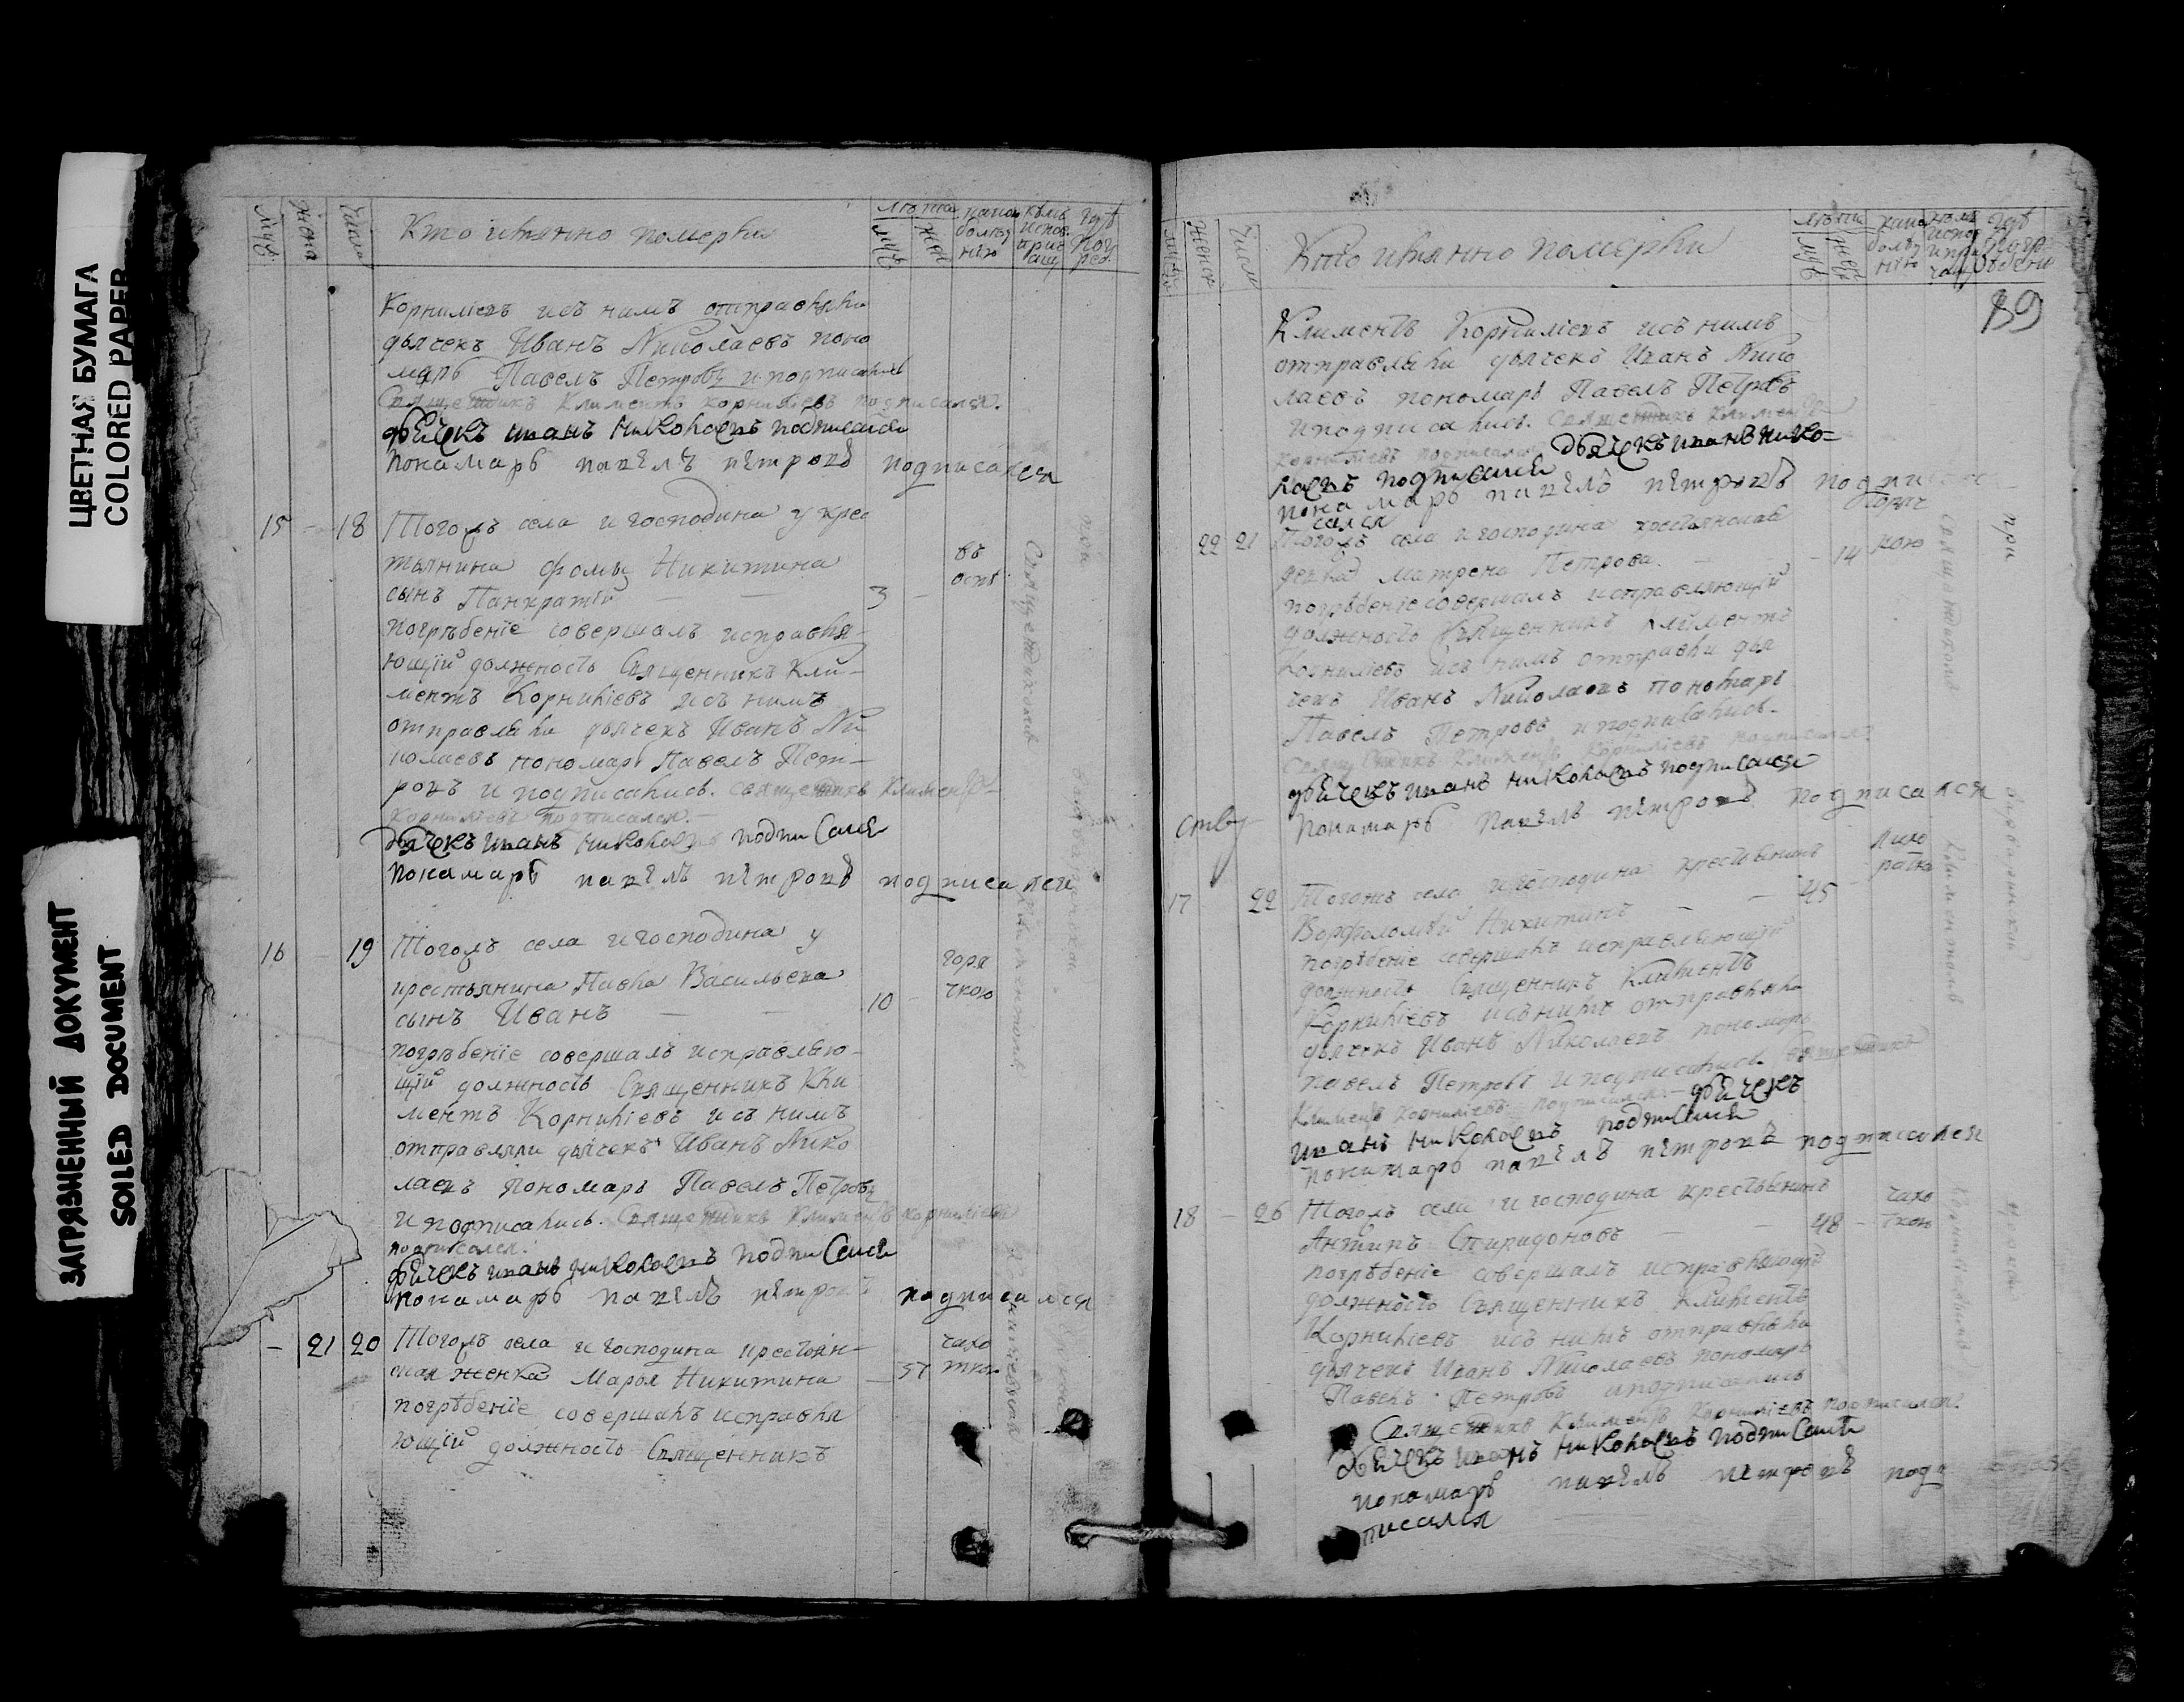 ЦВЕТНАЯ БУМАГА
COLORED PAPER
ЗАГРЯЗНЕННЫЙ ДОКУМЕНТ
SOILED DOCUMENT
Кто имянно померли
Корниліевъ исъ нимъ отправляли
дьячекъ Иванъ Николаевъ поно
марь Павелъ Петровъ и подписались
Священникъ Климентъ Корниліевъ подписался.
дьячекъ иванъ николаевъ подписался
понамарь павелъ петровъ подписался
15 - 18 Тогожъ села и господина у крес
тьянина Фомы Никитина въ
сынъ Панкратій — — 3 - оспѣ
погрѣбеніе совершалъ исправля-
ющій должность Священникъ Кли-
ментъ Корниліевъ исъ нимъ
отправляли дьячекъ Иванъ Ни
колаевъ пономарь Павелъ Пет-
ровъ и подписались. священникъ Климентъ
Корниліевъ подписался.-
дьячекъ иванъ николаевъ подписался
понамарь павелъ петровъ подписался
16 - 19 Тогожъ села и господина у горя
крестьянина Павла Васильева чкою
сынъ Иванъ — — 10 -
погрѣбеніе совершалъ исправляю-
щій должность Священникъ Кли
ментъ Корниліевъ исъ нимъ
отправляли дьячекъ Иванъ Нико
лаевъ пономарь Павелъ Петровъ
и подписались. Священникъ Климентъ Корниліевъ
подписался.
дьячекъ иванъ николаевъ подписался
понамарь павелъ петровъ подписался
- 21 20 Тогожъ села и господина крестьян- чахо
ская женка Марья Никитина — 57 ткою
погрѣбеніе совершалъ исправля
ющій должность Священникъ
Кто имянно померли
89
Климентъ Корниліевъ исъ нимъ
отправляли дьячекъ Иванъ Нико
лаевъ пономарь Павелъ Петровъ
и подписались. Священникъ Климентъ
Корниліевъ подписался дьячекъ иванъ нико-
лаевъ подписался
понамарь павелъ петровъ подпи
сался
22 21 Тогожъ села и господина крестьянская
девка Матрена Петрова. - - 14 кою
погрѣбеніе совершалъ исправляющій
должность Священникъ Климентъ
Корниліевъ исъ нимъ отправляли дья
чекъ Иванъ Николаевъ пономарь
Павелъ Петровъ и подписались.
Священникъ Климентъ Корниліевъ подписался
дьячекъ иванъ николаевъ подписался
ству понамарь павелъ петровъ подписался
17 22 Тогожъ села и господина крестьянинъ лихо
Ворфоломѣй Никитинъ — — 45 - ратка
погрѣбеніе совершалъ исправляющій
должность Священникъ Климентъ
Корниліевъ исъ нимъ отправляли
дьячекъ Иванъ Николаевъ пономарь
Павелъ Петровъ и подписались. Священникъ
Климентъ Корниліевъ подписался - дьячекъ
иванъ николаевъ подписался
понамарь павелъ петровъ подписался
18 - 26 Тогожъ села и господина крестьянинъ чахо
Антипъ Спиридоновъ — — 48 - ткою
погрѣбеніе совершалъ исправляющій
должность Священникъ Климентъ
Корниліевъ исъ нимъ отправляли
дьячекъ Иванъ Николаевъ пономарь
Павелъ Петровъ и подписались
Священникъ Климентъ Корниліевъ подписался.
дьячекъ иванъ николаевъ подписался
понамарь павелъ петровъ подп
писался